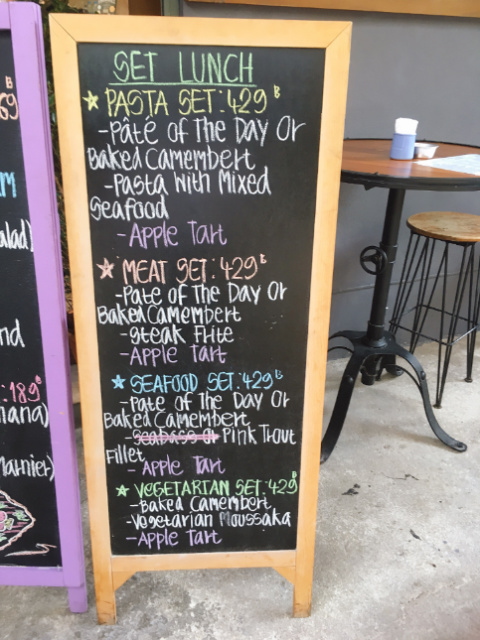 SET LUNCH
PASTA SET: 429 B
- Pâté of The Day Or
Baked Camembert
- Pasta With Mixed
Seafood
- Apple Tart
MEAT SET: 429 B
- Pate of The Day Or
Baked Camembert
- Steak Frite
- Apple Tart
SEAFOOD SET: 429 B
- Pate of The Day Or
Baked Camembert
- Seabass Or Pink Trout
Fillet
- Apple Tart
VEGETARIAN SET: 429 B
- Baked Camembert
- Vegetarian Moussaka
- Apple Tart
69 B
alad)
nd
:189 B
nana)
Marnier)